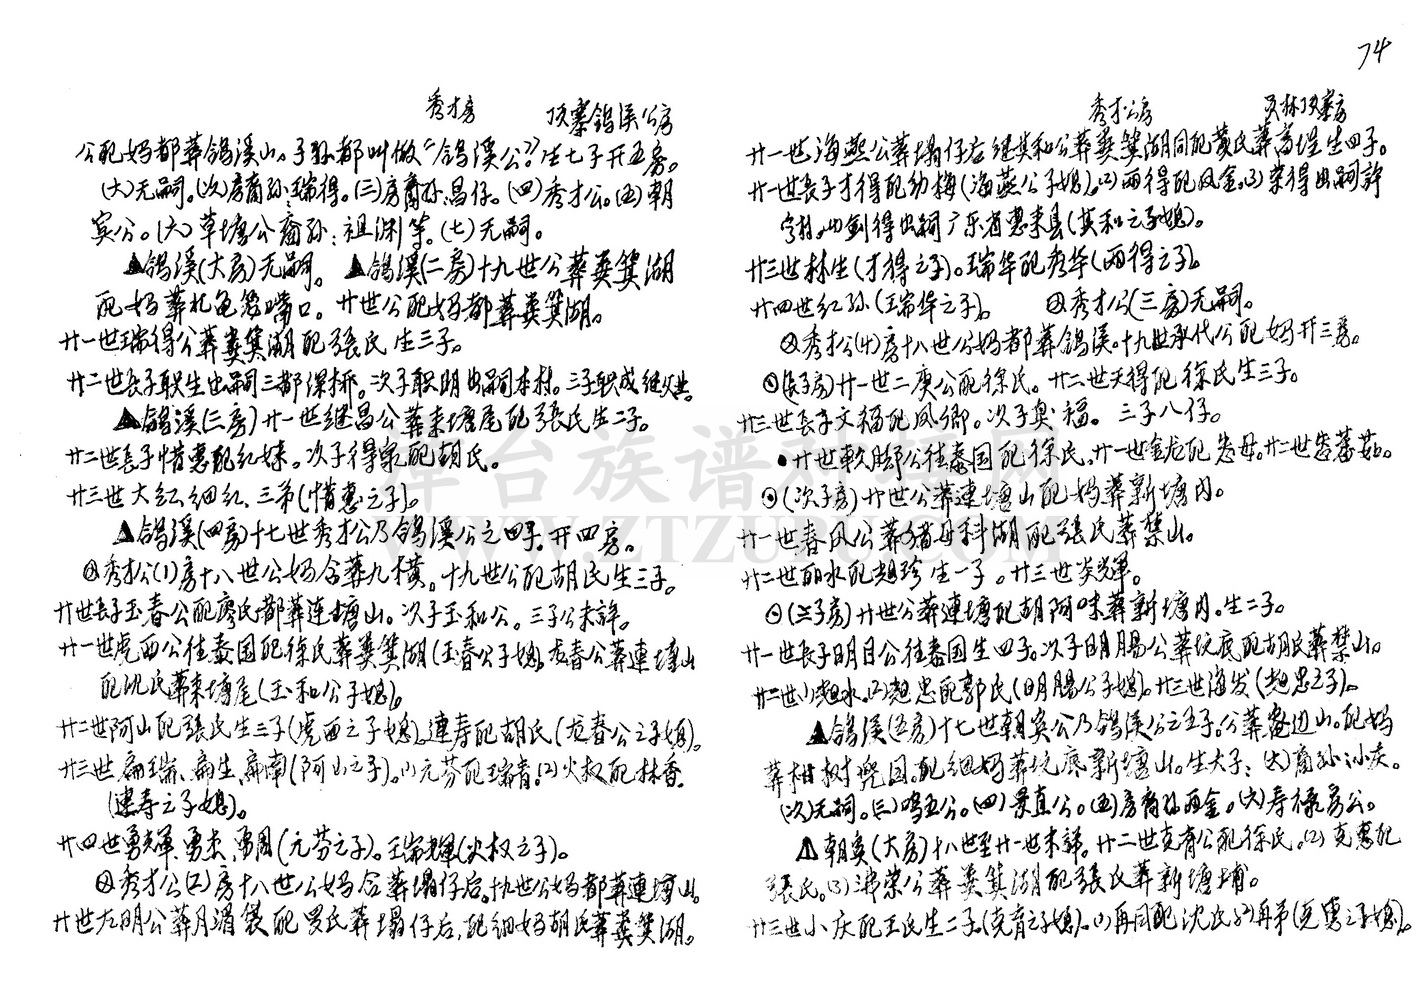 74
秀才房 顶寨鸽溪公房
公配妈都葬鸽溪山。子孙都叫做“鸽溪公”。生七子开五房。
(大)无嗣。(次)房裔孙:瑞得。(三)房裔孙:昌仔。(四)秀才公。(五)朝
宾公。(六)草塘公裔孙:祖渊等。(七)无嗣。
▲鸽溪(大房)无嗣。 ▲鸽溪(二房)十九世公葬粪箕湖
配妈葬 嘴口。廿世公配妈都葬粪箕湖。
廿一世瑞得公葬粪箕湖配張氏生三子。
廿二世長子职生出嗣三都深桥。次子职明出嗣本林。三子职成继
▲鸽溪(三房)廿一世继昌公葬東塘尾配張氏生二子。
廿二世長子惜惠配红妹。次子得泉配胡氏。
廿三世大红、细红、三弟(惜惠之子)。
▲鸽溪(四房)十七世秀才公乃鸽溪公之四子。开四房。
秀才公(1)房十八世公妈合葬九横。十九世公配胡氏生三子。
廿世長子玉春公配廖氏都葬连塘山。次子玉和公。三子公未詳。
廿一世虎西公往泰国配徐氏葬粪箕湖(玉春公子媳)。龙春公葬連塘山
配沈氏葬東塘尾(玉和公子媳)。
廿二世阿山配張氏生三子(虎西之子媳)。連寿配胡氏(龙春公之子媳)。
廿三世 瑞、 生、 南(阿山之子)。(1)元芬配瑞青。(2)火叔配林香
(連寿之子媳)。
廿四世勇輝、勇杰、勇周(元芬之子)。王瑞輝(火叔之子)。
秀才公(2)房十八世公妈合葬塌仔后。十九世公妈都葬連塘山。
廿世龙明公葬月眉袋配罗氏葬塌仔后,配细妈胡氏葬粪箕湖。
秀才公房 頂寨房
廿一世海燕公葬塌仔后继其和公葬粪箕湖同配黄氏葬 生四子。
廿一世長子才得配幼梅(海燕公子媳)。(2)两得配凤金。(3)荣得出嗣許
。(4)剑得出嗣广东省惠来县(其和之子媳)。
廿三世林生(才得之子)。瑞华配秀华(两得之子)。
廿四世红孙(瑞华之子)。 秀才公(三房)无嗣。
秀才公(4)房十八世公妈都葬鸽溪。十九世承代公配妈开三房。
(長子房)廿一世二庚公配徐氏。廿二世天得配徐氏生三子。
廿三世長子文福配凤卿。次子奥福。三子八仔。
●廿世軟脚公往泰国配徐氏。廿一世金龙配 。廿二世 蕃茹。
(次子房)廿世公葬連塘山配妈葬新塘内。
廿一世春风公葬猪母科湖配張氏葬禁山。
廿二世丽水配超珍生一子。廿三世炎輝。
(三子房)廿世公葬連塘配胡阿味葬新塘内。生二子。
廿一世長子明日公往泰国生四子。次子明腸公葬坑底配胡氏葬禁山。
廿二世(1)想水。(2)想忠配郭氏(明腸公子媳)。廿三世海发(想忠之子)。
▲鸽溪(五房)十七世朝宾公乃鸽溪公之五子。公葬窑边山。配妈
葬柑树 园。配细妈葬坑底新塘山。生六子:(大)裔孙:小庆。
(次)无嗣。(三)鸣五公。(四)景直公。(五)房裔孙:两金。(六)寿禄房公。
▲朝宾(大房)十八世至廿一世未詳。廿二世克育公配徐氏。(2)克惠配
張氏。(3)沸荣公葬粪箕湖配張氏葬新塘埔。
廿三世小庆配王氏生二子。(克育之子媳)。(1)再同配沈氏。(2)再弟(克惠之子媳)。